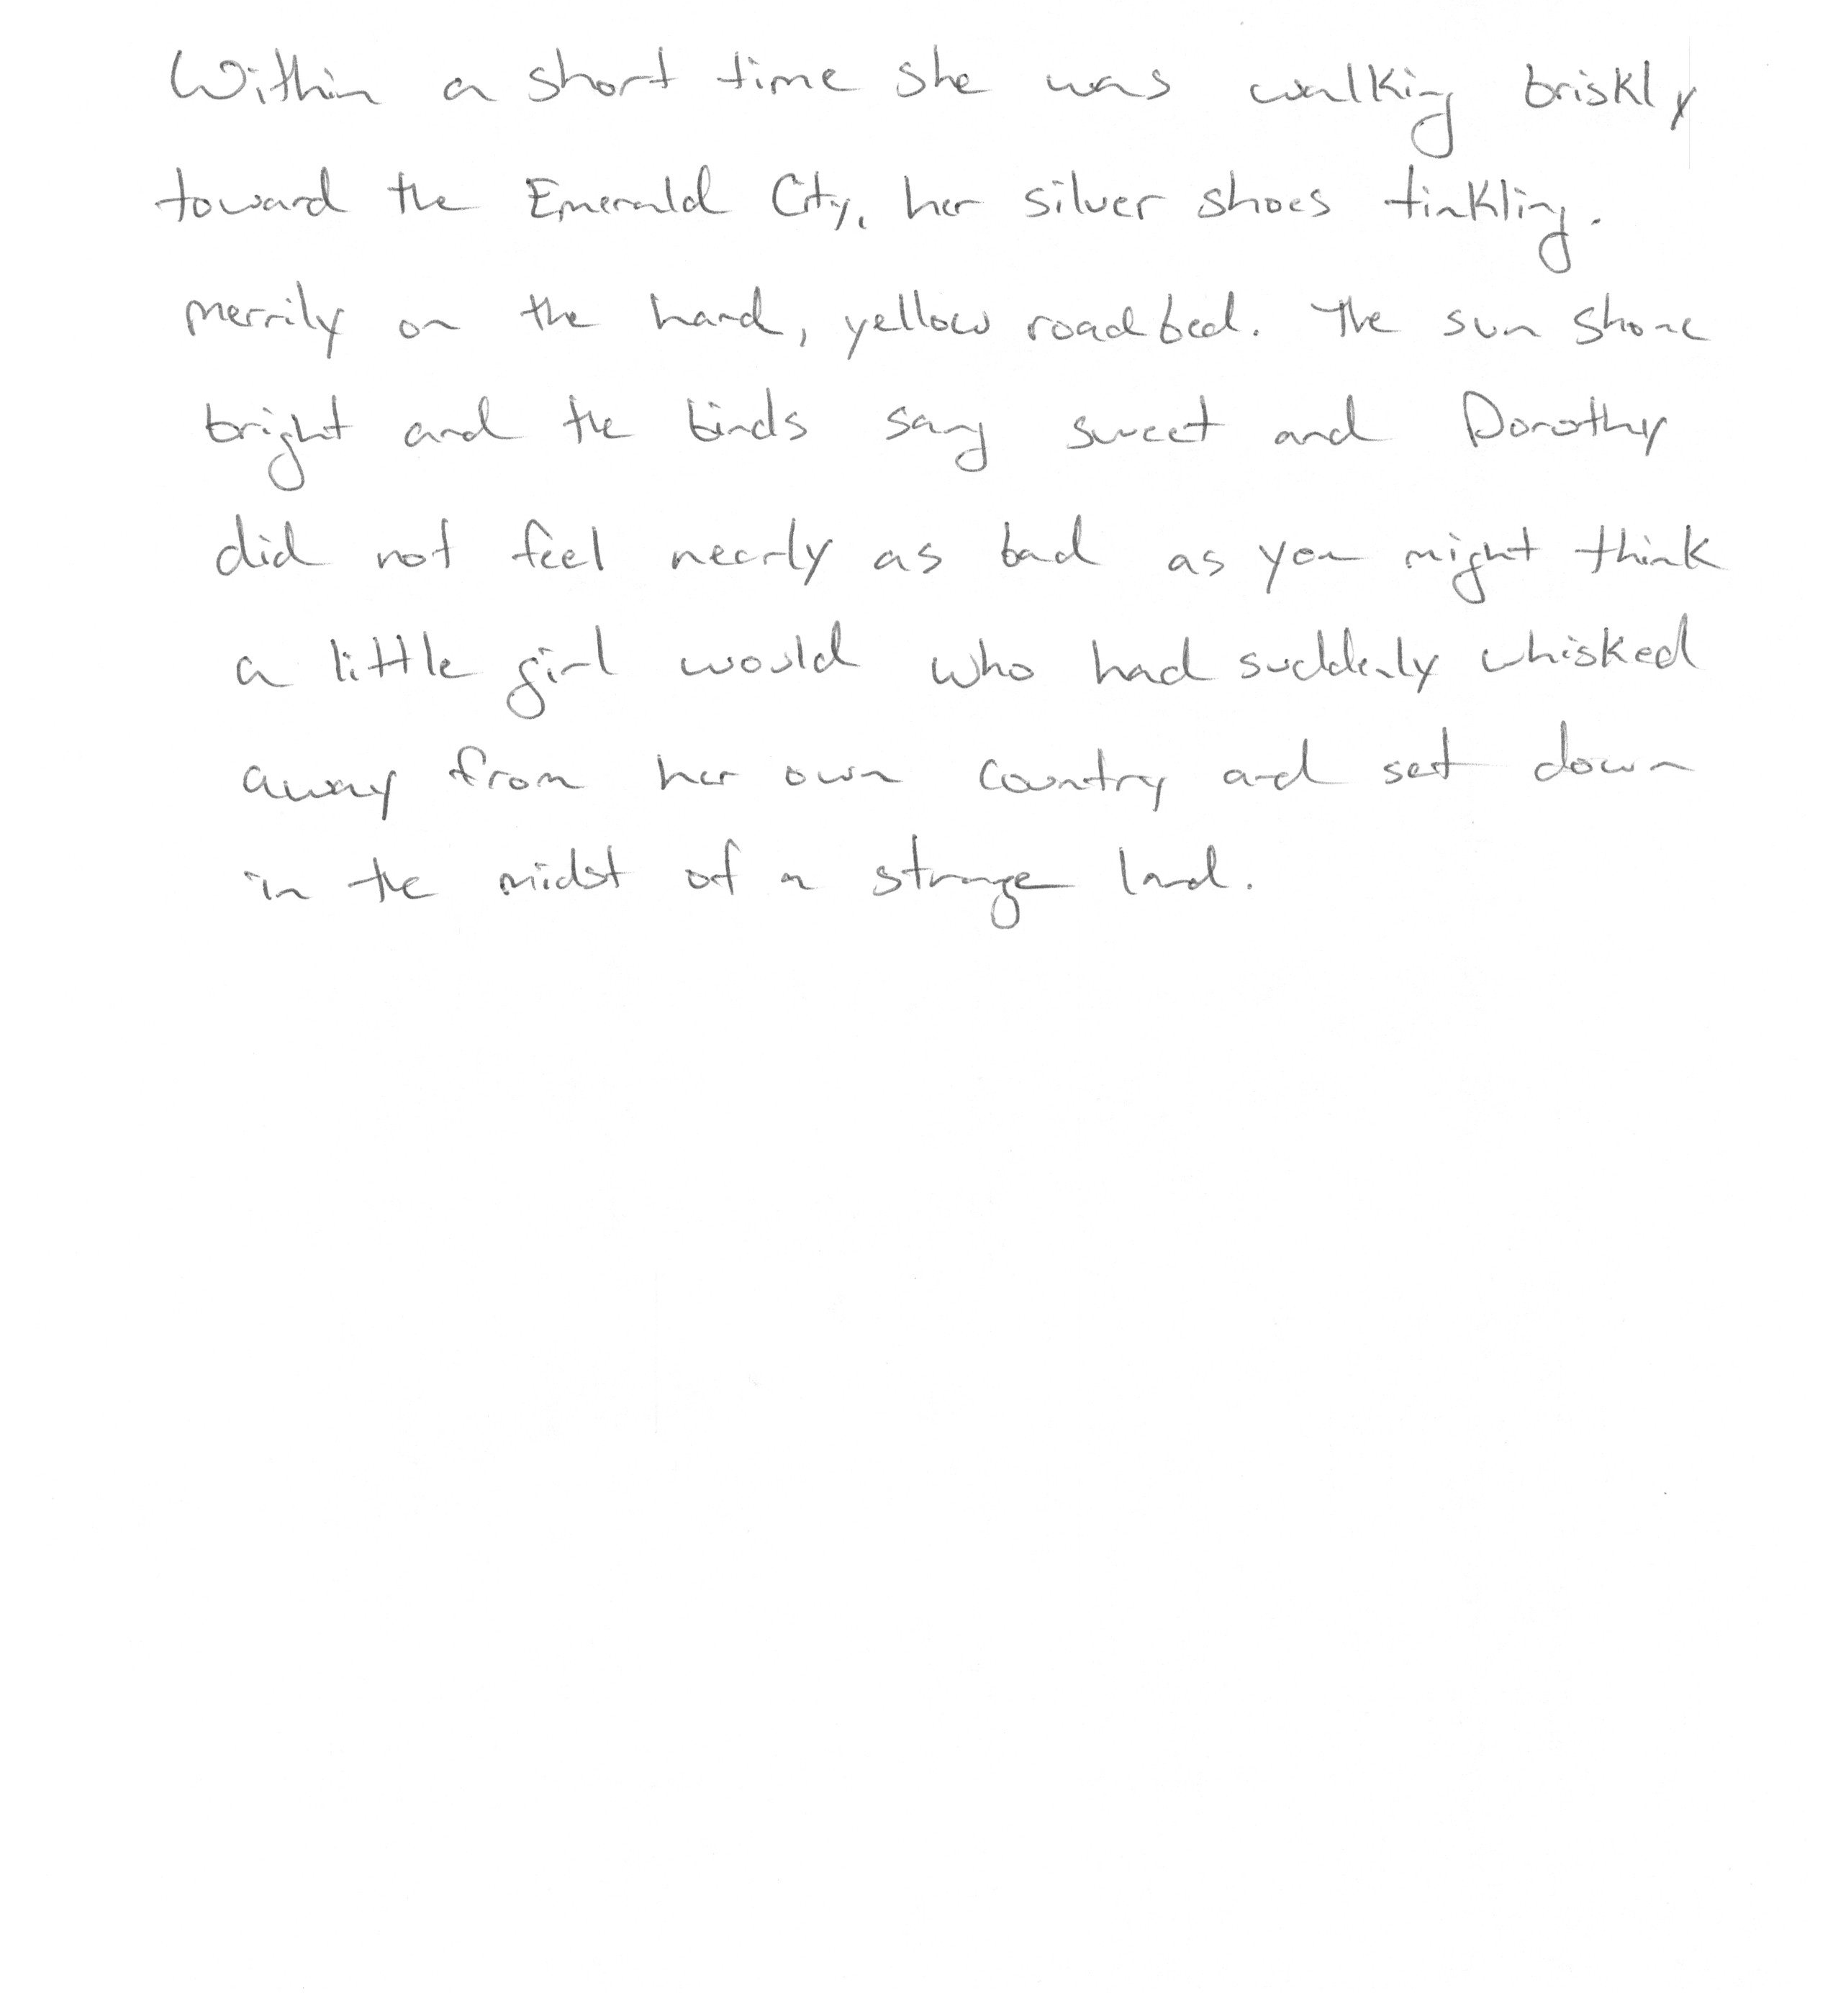 Within a short time she was walking briskly
toward the Emerald City, her silver shoes tinkling.
merrily on the hard, yellow roadbed. The sun shone
bright and the birds sang sweet and Dorothy
did not feel nearly as bad as you might think
a little girl would who had suddenly whisked
away from her own country and set down
in the midst of a strange land.